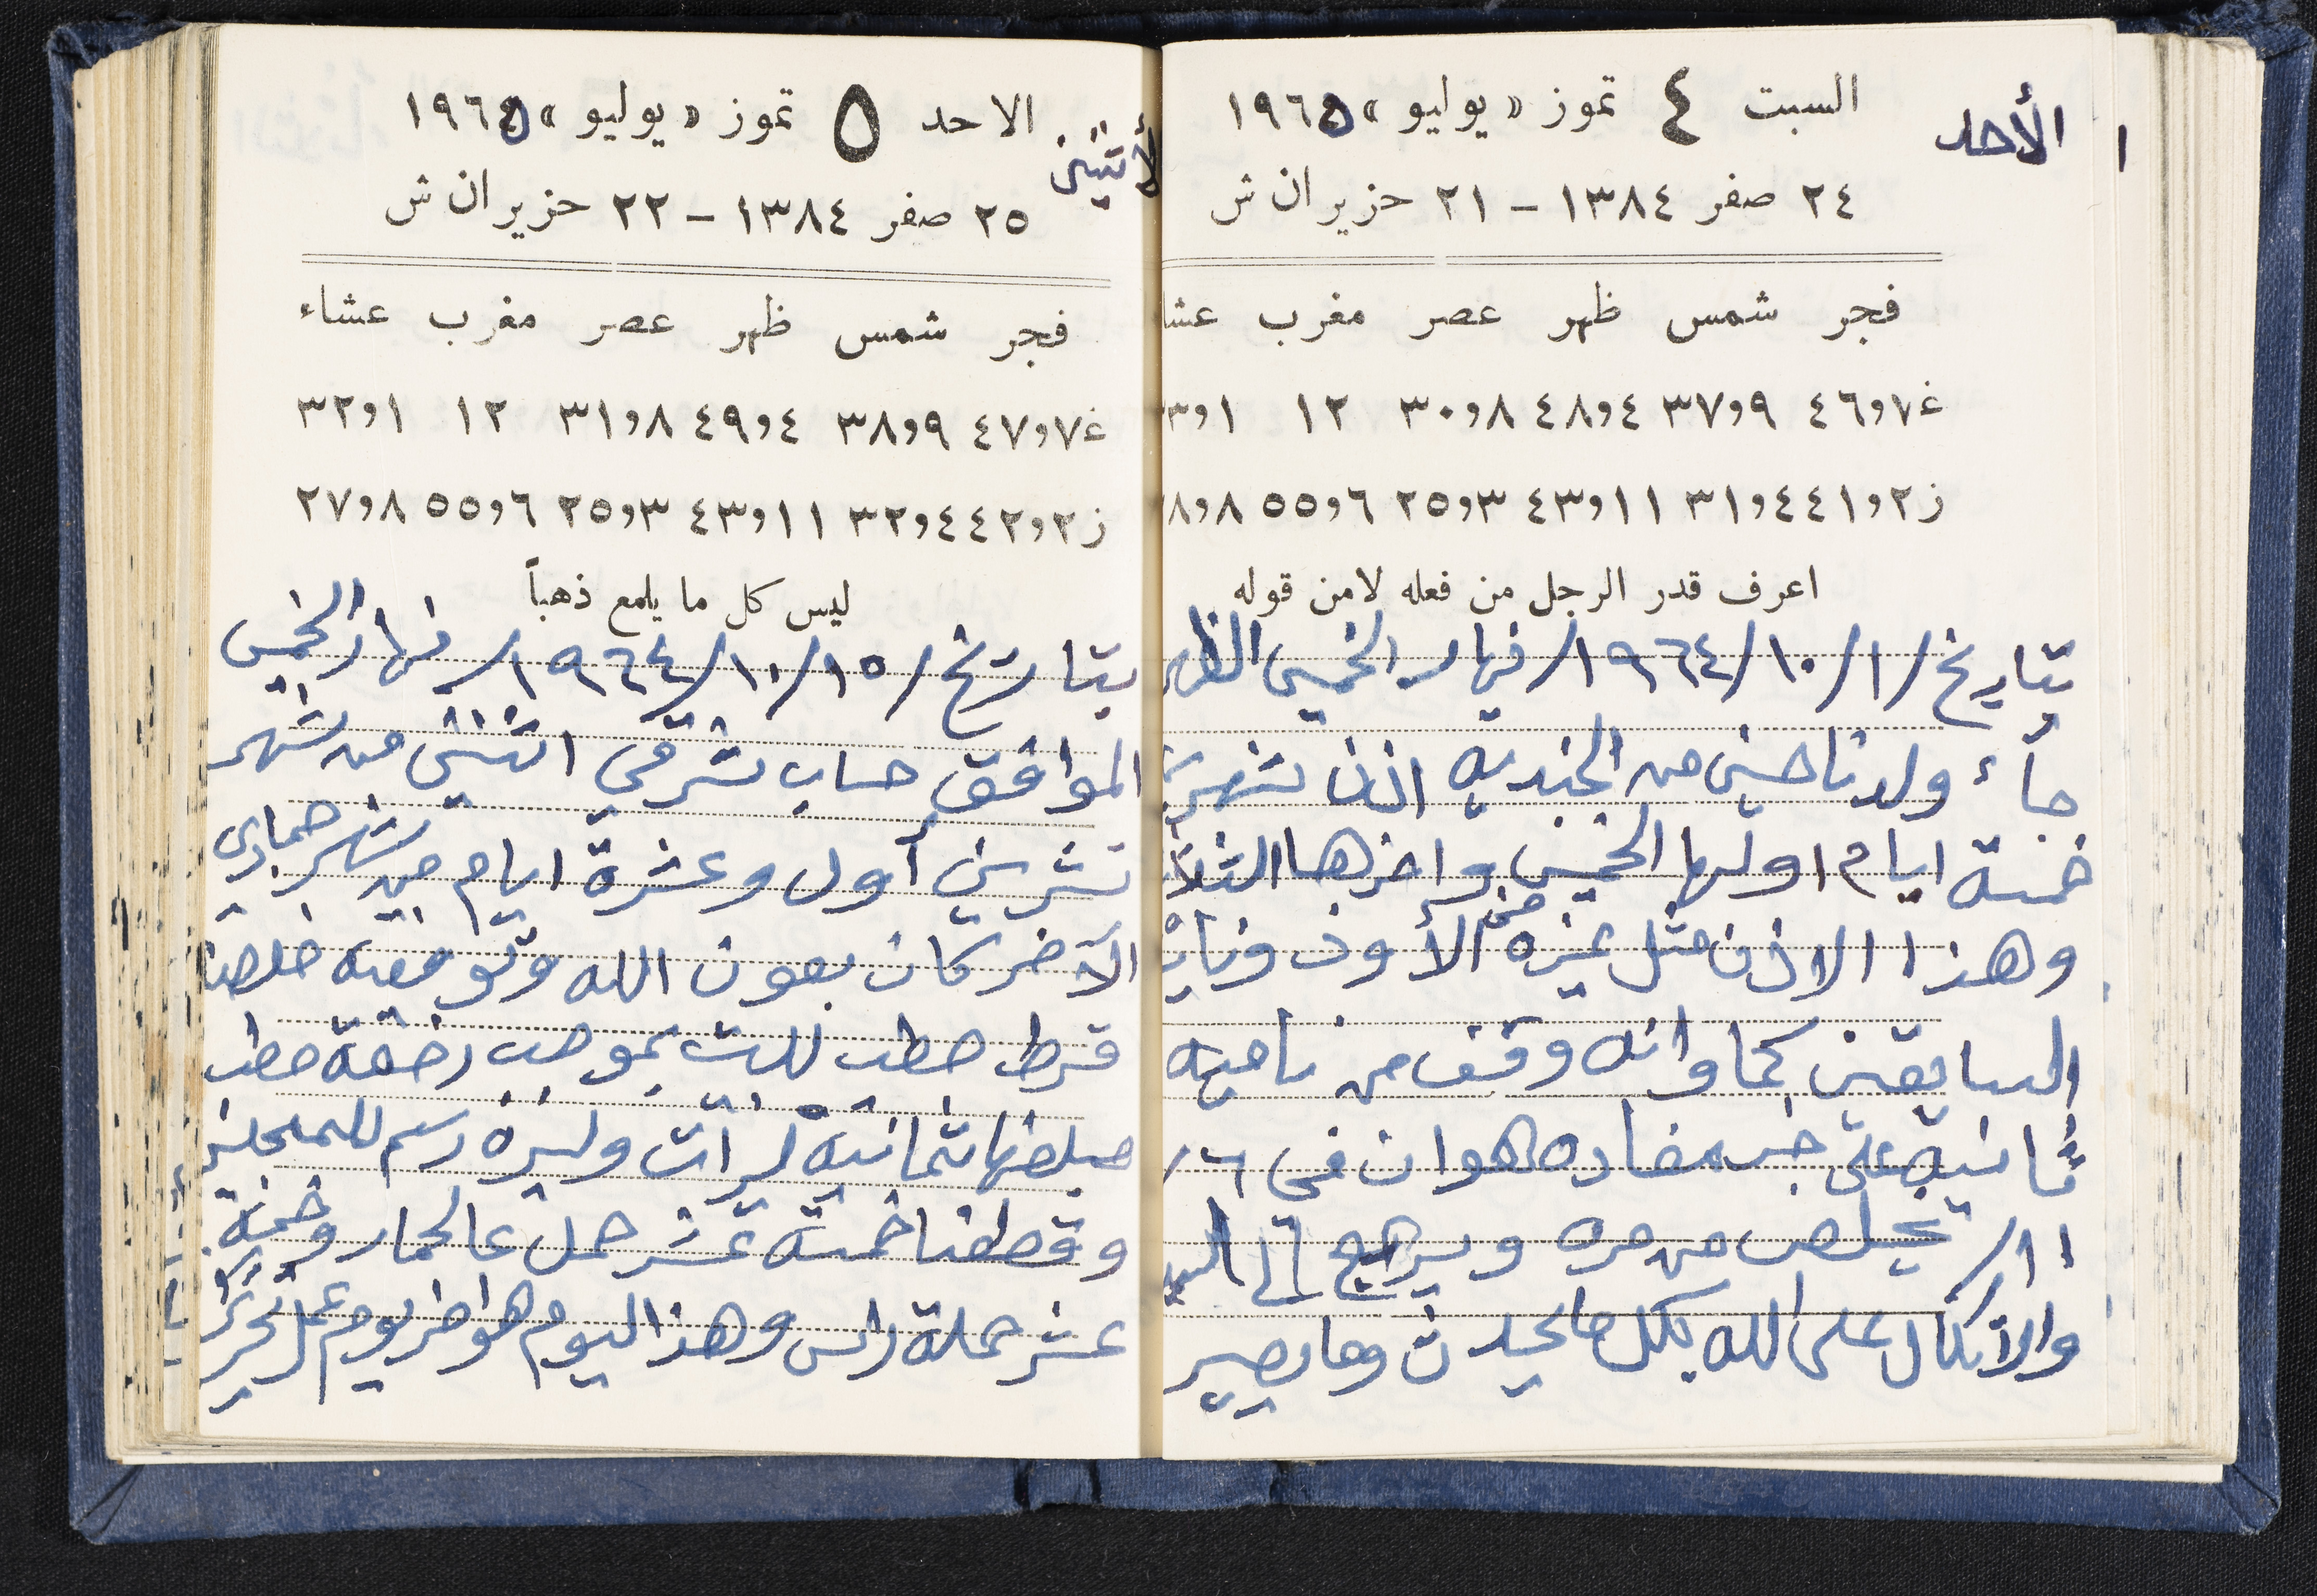 الأحد
السبت ٤ تموز «يوليو» ١٩٦٥
٢٤ صفر ١٣٨٤ - ٢١ حزيران ش
فجر شمس ظهر عصر مغرب عشا
غ ٧و٤٦ ٩و٣٧ ٤و٤٨ ٨و٣٠ ١٢
ز ٢و٤٤١و٣١ ١١و٤٣ ٣و٢٥ ٦و٥٥
اعرف قدر الرجل من فعله لا من قوله
بتاريخ /١/ ١٠/ ١٩٦٤/ نهار الخميس الظهر
جآء ولدنا حسين من الجنديه اذن لشهر
خمسة ايام اولها الخميس واخرها الثلا
وهذا الاذن مثل غيره من الأذون
السابقين كما وانه وقف من ناحيه
ثانيه على خبر مفاده هو ان في ٦ /
١١/ يخلص من مره ويرجع الى البيت
والاتكال على الله بكل ما يحدث وما يصير
لأثنين
الاحد ٥ تموز «يوليو» ١٩٦٥
٢٥ صفر ١٣٨٤ - ٢٢ حزيران ش
فجر شمس ظهر عصر مغرب عشاء
غ ٧و٤٧ ٩و٣٨ ٤و٤٩ ٨و٣١ ١٢ ١و٣٢
ز ٢و٤٤٢و٣٢ ١١و٤٣ ٣و٢٥ ٦و٥٥ ٨و٢٧
ليس كل ما يلمع ذهباً
بتاريخ /١٥/ ١٠/ ١٩٦٤/ نهار الخميس
الموافق حساب شرقي اثنين من شهر
تشرين آول وعشرة ايام من شهر جمادى
الآخر كان بعون الله وتوفيقه خلصنا
قرط حطب للبيت بموجب رخصة حطب
مبلغها ثمانية ليرات وليره رسم للمجلس
وقطعنا خمسة عشر حمل عالحمار وخمسة
عشر حملة راس وهذا اليوم هو اخر يوم عمل